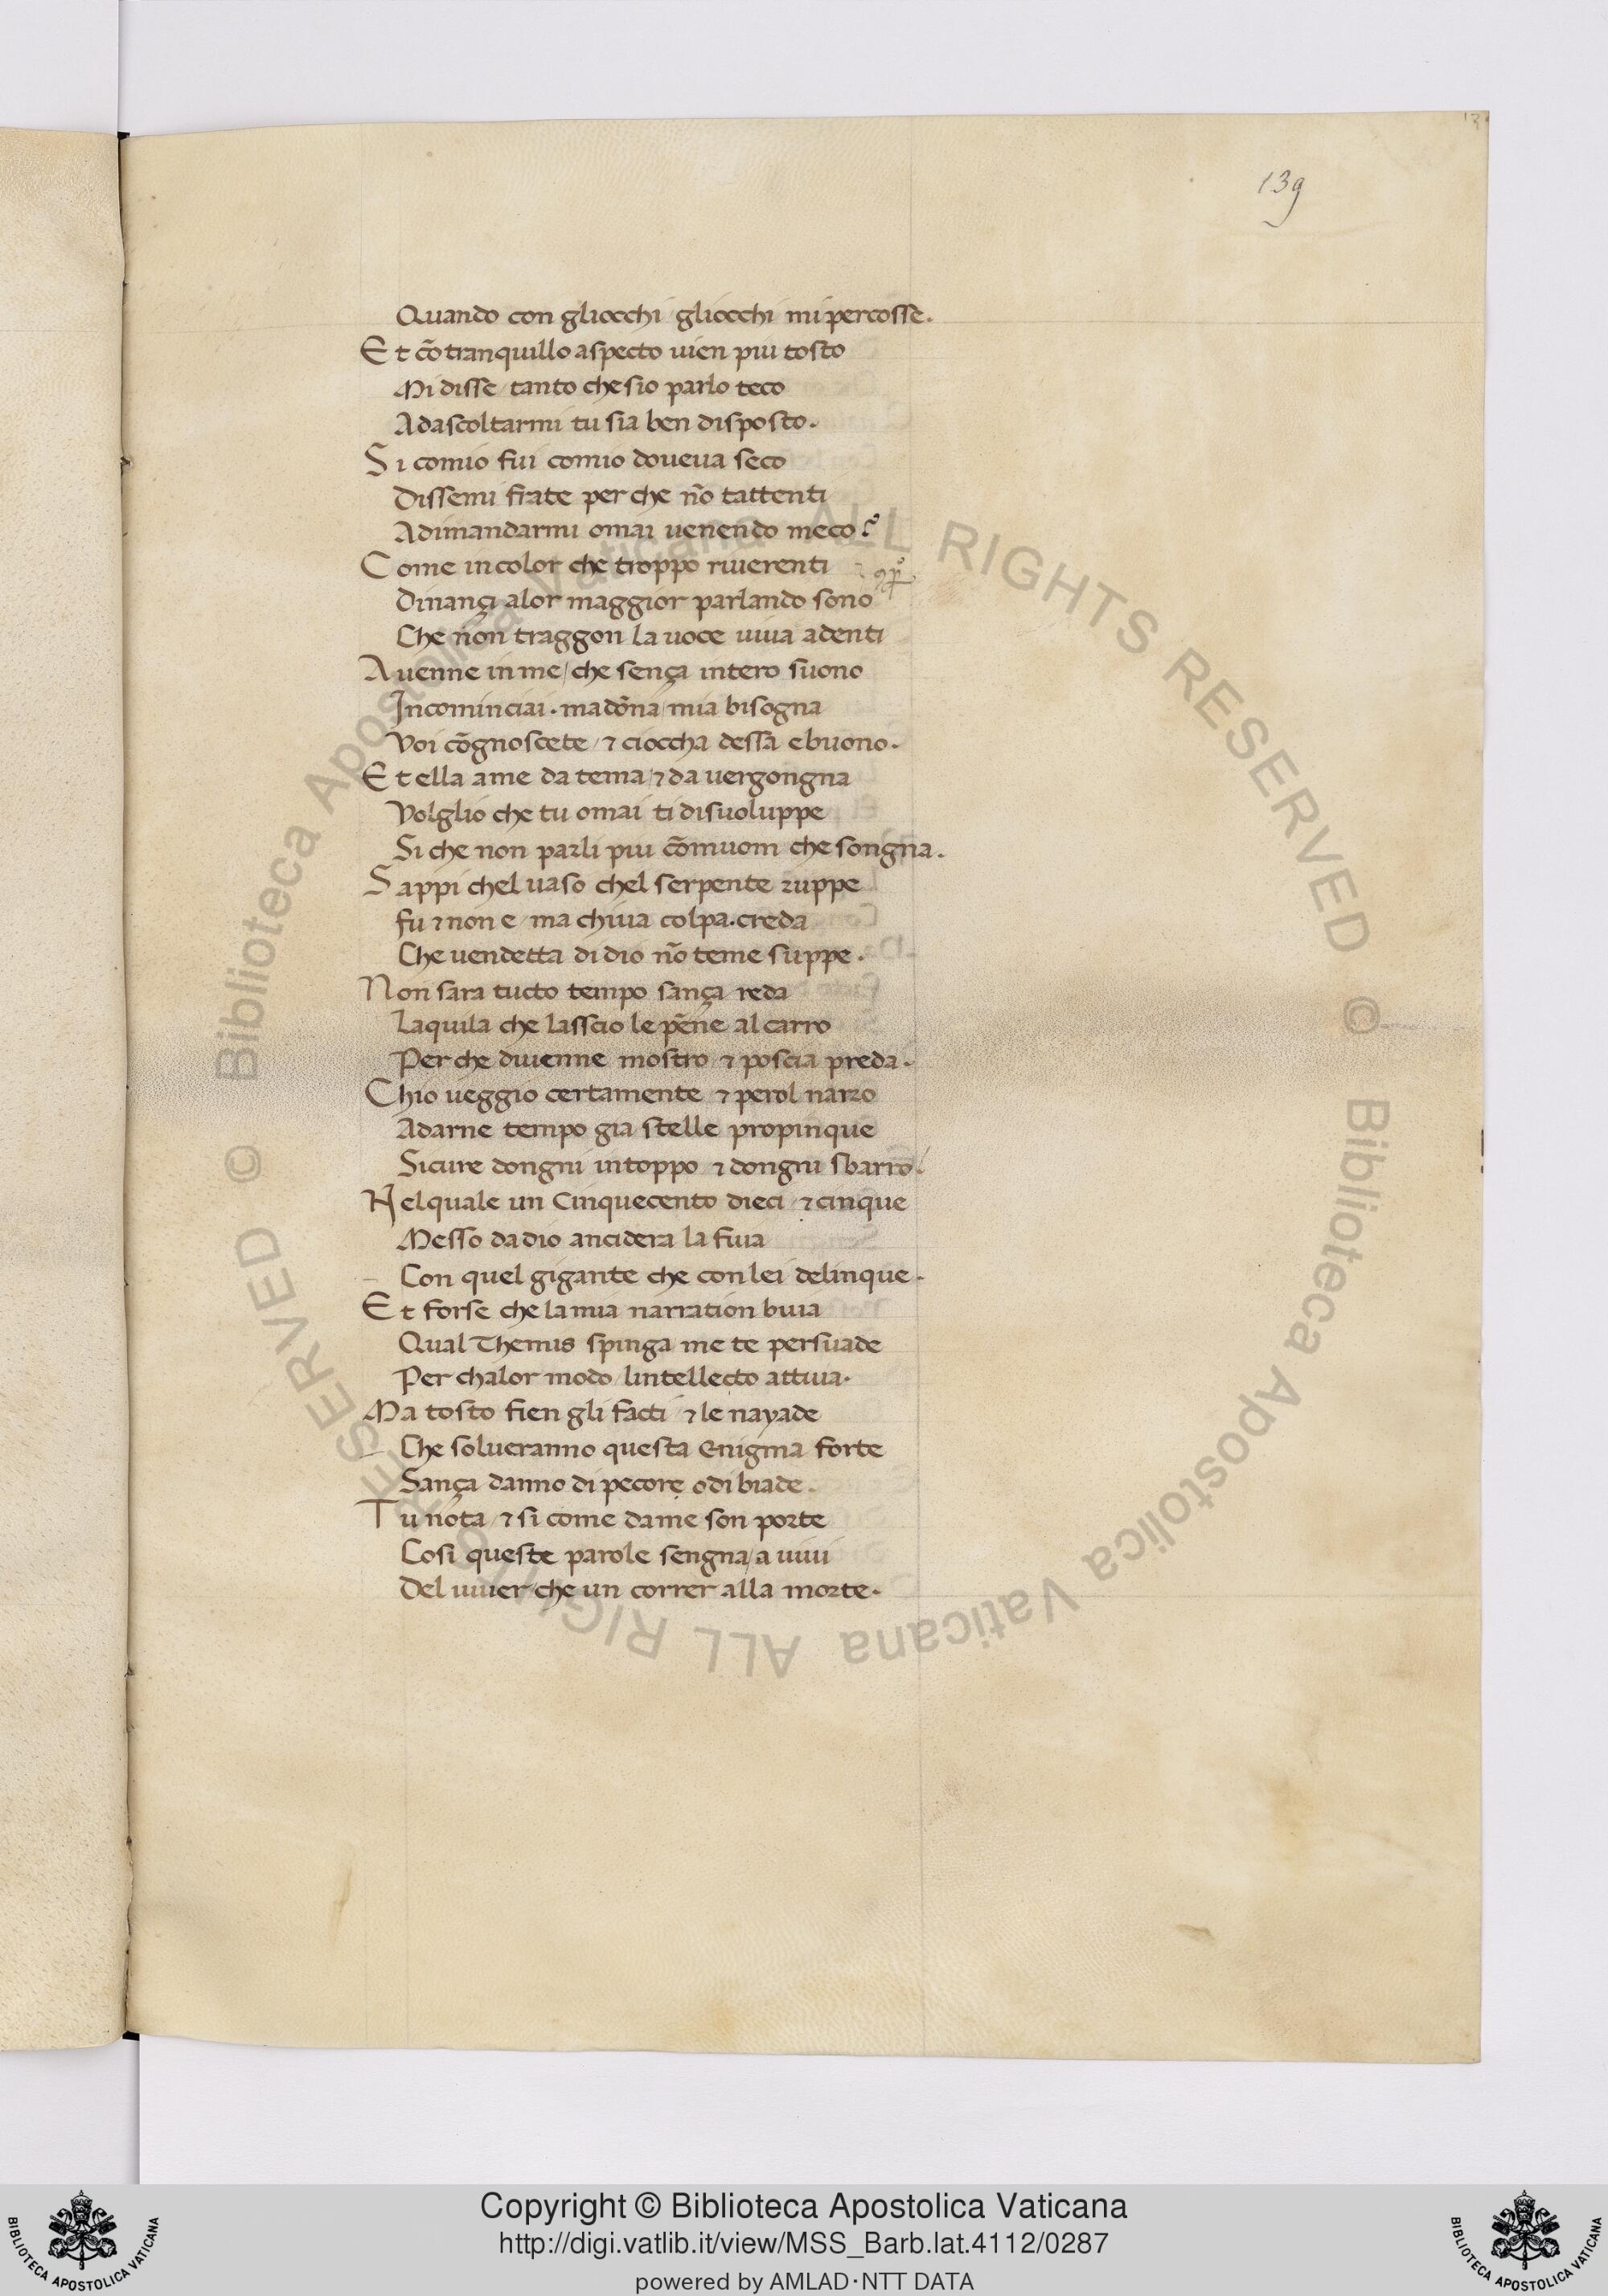 139
Quando con gliocchi / gliocchi mi percosse.
Et cō tranquillo aspecto uien piu tosto
Mi disse / tanto che sio parlo teco
Adascoltarmi tu sia ben disposto.
Si comio fui comio doueua seco
Dissemi frate per che nō tattenti
Adimandarmi omai uenendo meco?
Come in color che troppo riuerenti
Dinançi alor maggior parlando sono
Che non traggon la uoce uiua adenti
Auenne in me / che sença intero suono
Incominciai . madōna / mia bisogna
Voi cōgnoscete / ⁊ cioccha dessa e buono.
Et ella ame da tema / ⁊ da uergongna
Volglio che tu omai ti disuoluppe
Si che non parli piu cōmuom che songna.
Sappi chel uaso chel serpente ruppe
fu ⁊ non e / ma chiua colpa . creda
Che uendetta di dio nō teme suppe.
Non sara tucto tempo sança reda
Laquila che lasscio le pēne al carro
Per che diuenne mostro / ⁊ poscia preda.
Chio ueggio certamente / ⁊ perol narro
Adarne tempo gia stelle propinque
Sicure dongni intoppo / ⁊ dongni sbarro.
Nelquale un Cinquecento dieci / ⁊ cinque
Messo da dio anciderà la fuia
Con quel gigante che con lei delinque.
Et forse che la mia narration buia
Qual Themis / spinga / me te persuade
Per chalor modo / lintellecto attuia.
Ma tosto fien gli facti / ⁊ le nayade
Che solueranno questa enigma forte
Sança danno di pecore / o di biade.
Tu nota / ⁊ si come da me son porte
Cosi queste parole sengna / a uiui
Del uiuer / che un correr alla morte.
© Biblioteca Apostolica Vaticana ALL RIGHTS RESERVED © Biblioteca Apostolica Vaticana ALL RIGHTS RESERVED
Copyright © Biblioteca Apostolica Vaticana
http://digi.vatlib.it/view/MSS_Barb.lat.4112/0287
powered by AMLAD·NTT DATA
BIBLIOTECA APOSTOLICA VATICANA
BIBLIOTECA APOSTOLICA VATICANA